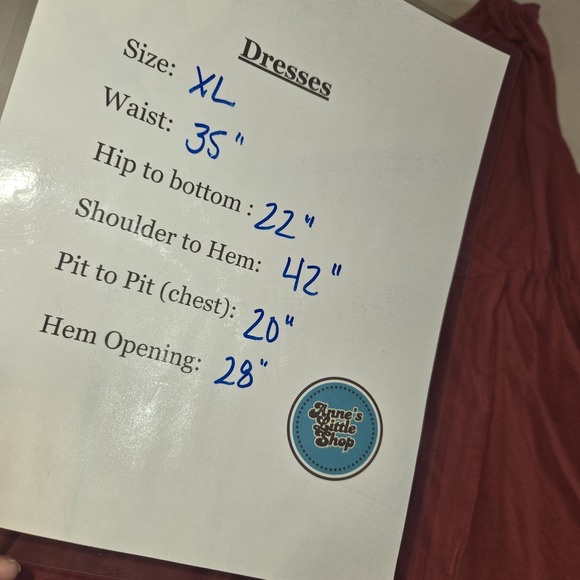 Dresses
Size: XL
Waist: 35"
Hip to bottom : 22"
Shoulder to Hem: 42"
Pit to Pit (chest): 20"
Hem Opening: 28"
Anne's
Little
Shop